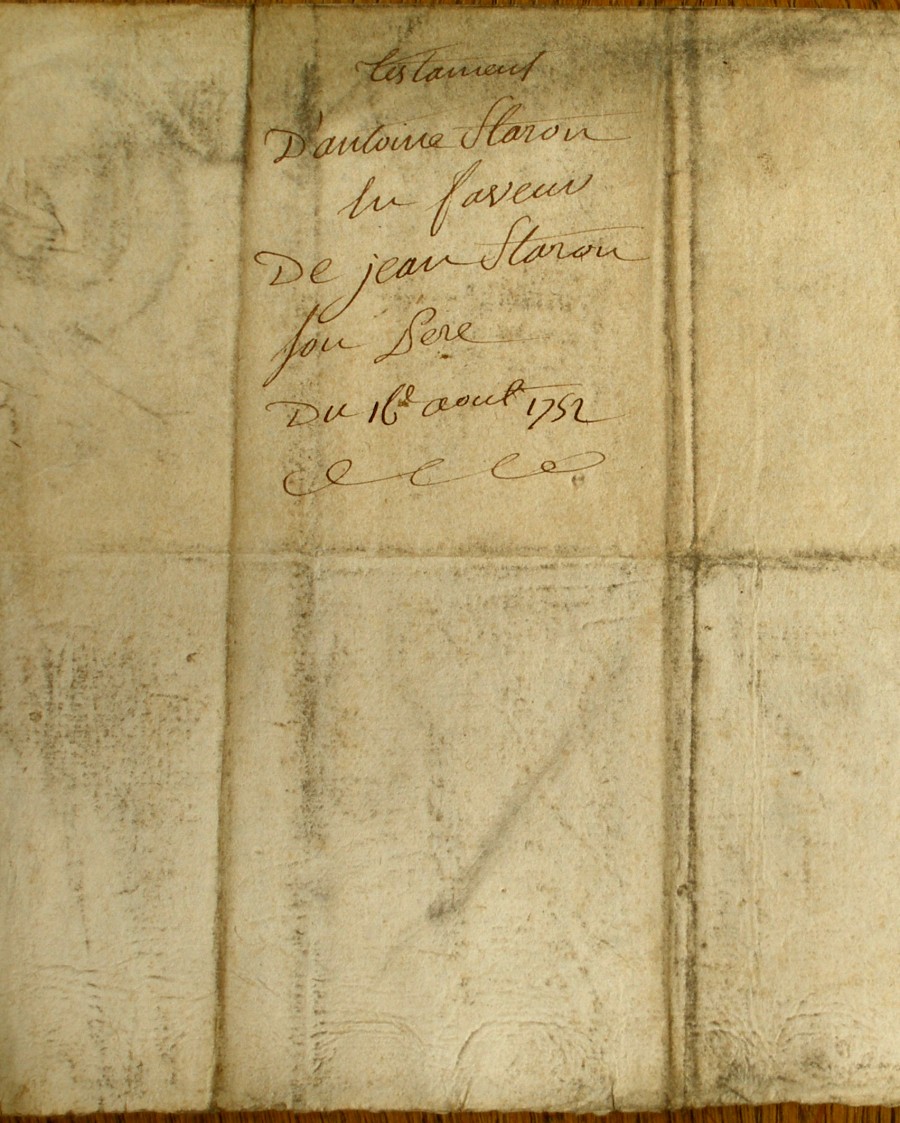 testament
D'antoine Staron
En faveur
De jean Staron
son Pere
Du 16e aoust 1752